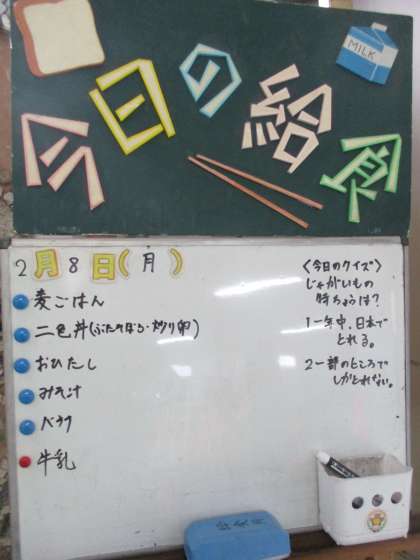 今日の給食
MILK
2月8日(月)
麦ごはん
二色丼(ぶたそぼろ・炒り卵)
おひたし
みそ汁
牛乳
〈今日のクイズ〉
じゃがいもの
特ちょうは?
1一年中、日本で
とれる。
2一部のところで
しかとれない。